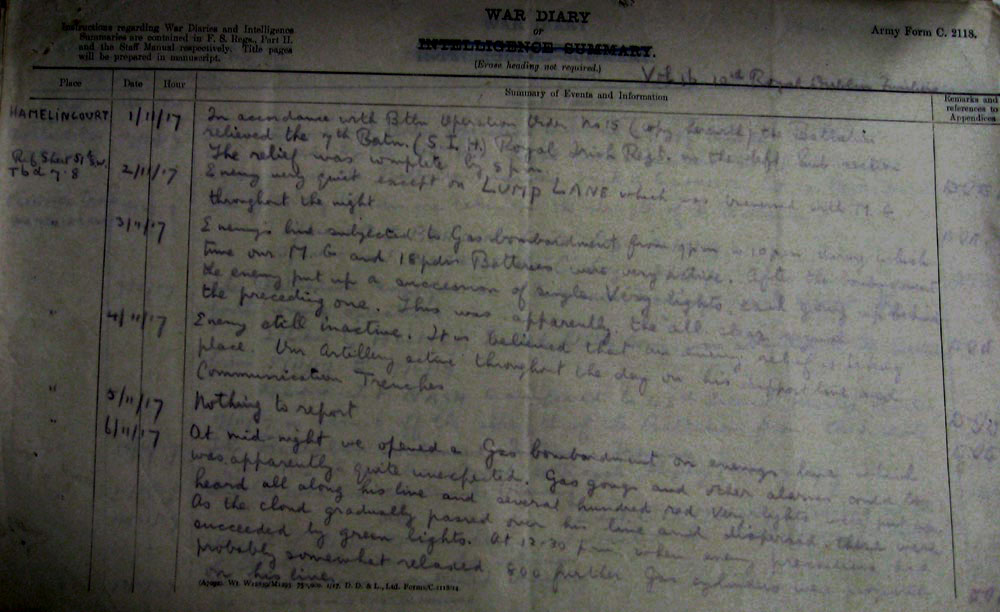 Instructions regarding War Diaries and Intelligence
Summaries are contained in F. S. Regs., Part II.
and the Staff Manual respectively. Title pages
will be prepared in manuscript.
WAR DIARY
or
INTELLIGENCE SUMMARY.
(Erase heading not required.)
Army Form C. 2118.
10th Royal Dublin
Place
Date
Hour
Summary of Events and Information
Remarks and
references to
Appendices
HAMELINCOURT
1/11/17
In accordance with Bttn Operation Order No 15 (copy herewith) the Battalion
relieved the 7th Battn. (S.I.H.) Royal Irish Regt. in the left sub section
The relief was complete by 5 pm
Ref Sheet 51
T 6 d 7.8
2/11/17
Enemy very quiet except on LUMP LANE which was traversed with M.G.
throughout the night
3/11/17
Enemys line subjected to Gas bombardment from 9 pm to 10 pm during which
time our M.G. and 18 pdr Batteries were very active. After the bombardment
the enemy put up a succession of single Very lights each going up
the preceding one. This was apparently the all
"
4/11/17
Enemy still inactive. It is believed that an enemy relief is taking
place. Our Artillery active throughout the day on his support line and
Communication Trenches
"
5/11/17
Nothing to report
"
6/11/17
At mid-night we opened a Gas bombardment on enemys line which
was apparently quite unexpected. Gas gongs and other alarms could be
heard all along his line and several hundred red Very lights were put up
As the cloud gradually passed over his line and dispersed these were
succeeded by green lights. At 12.30 pm when enemy precautions had
probably somewhat relaxed, 800 further Gas cylinders were
on his line.
D. D. & L., Ltd.